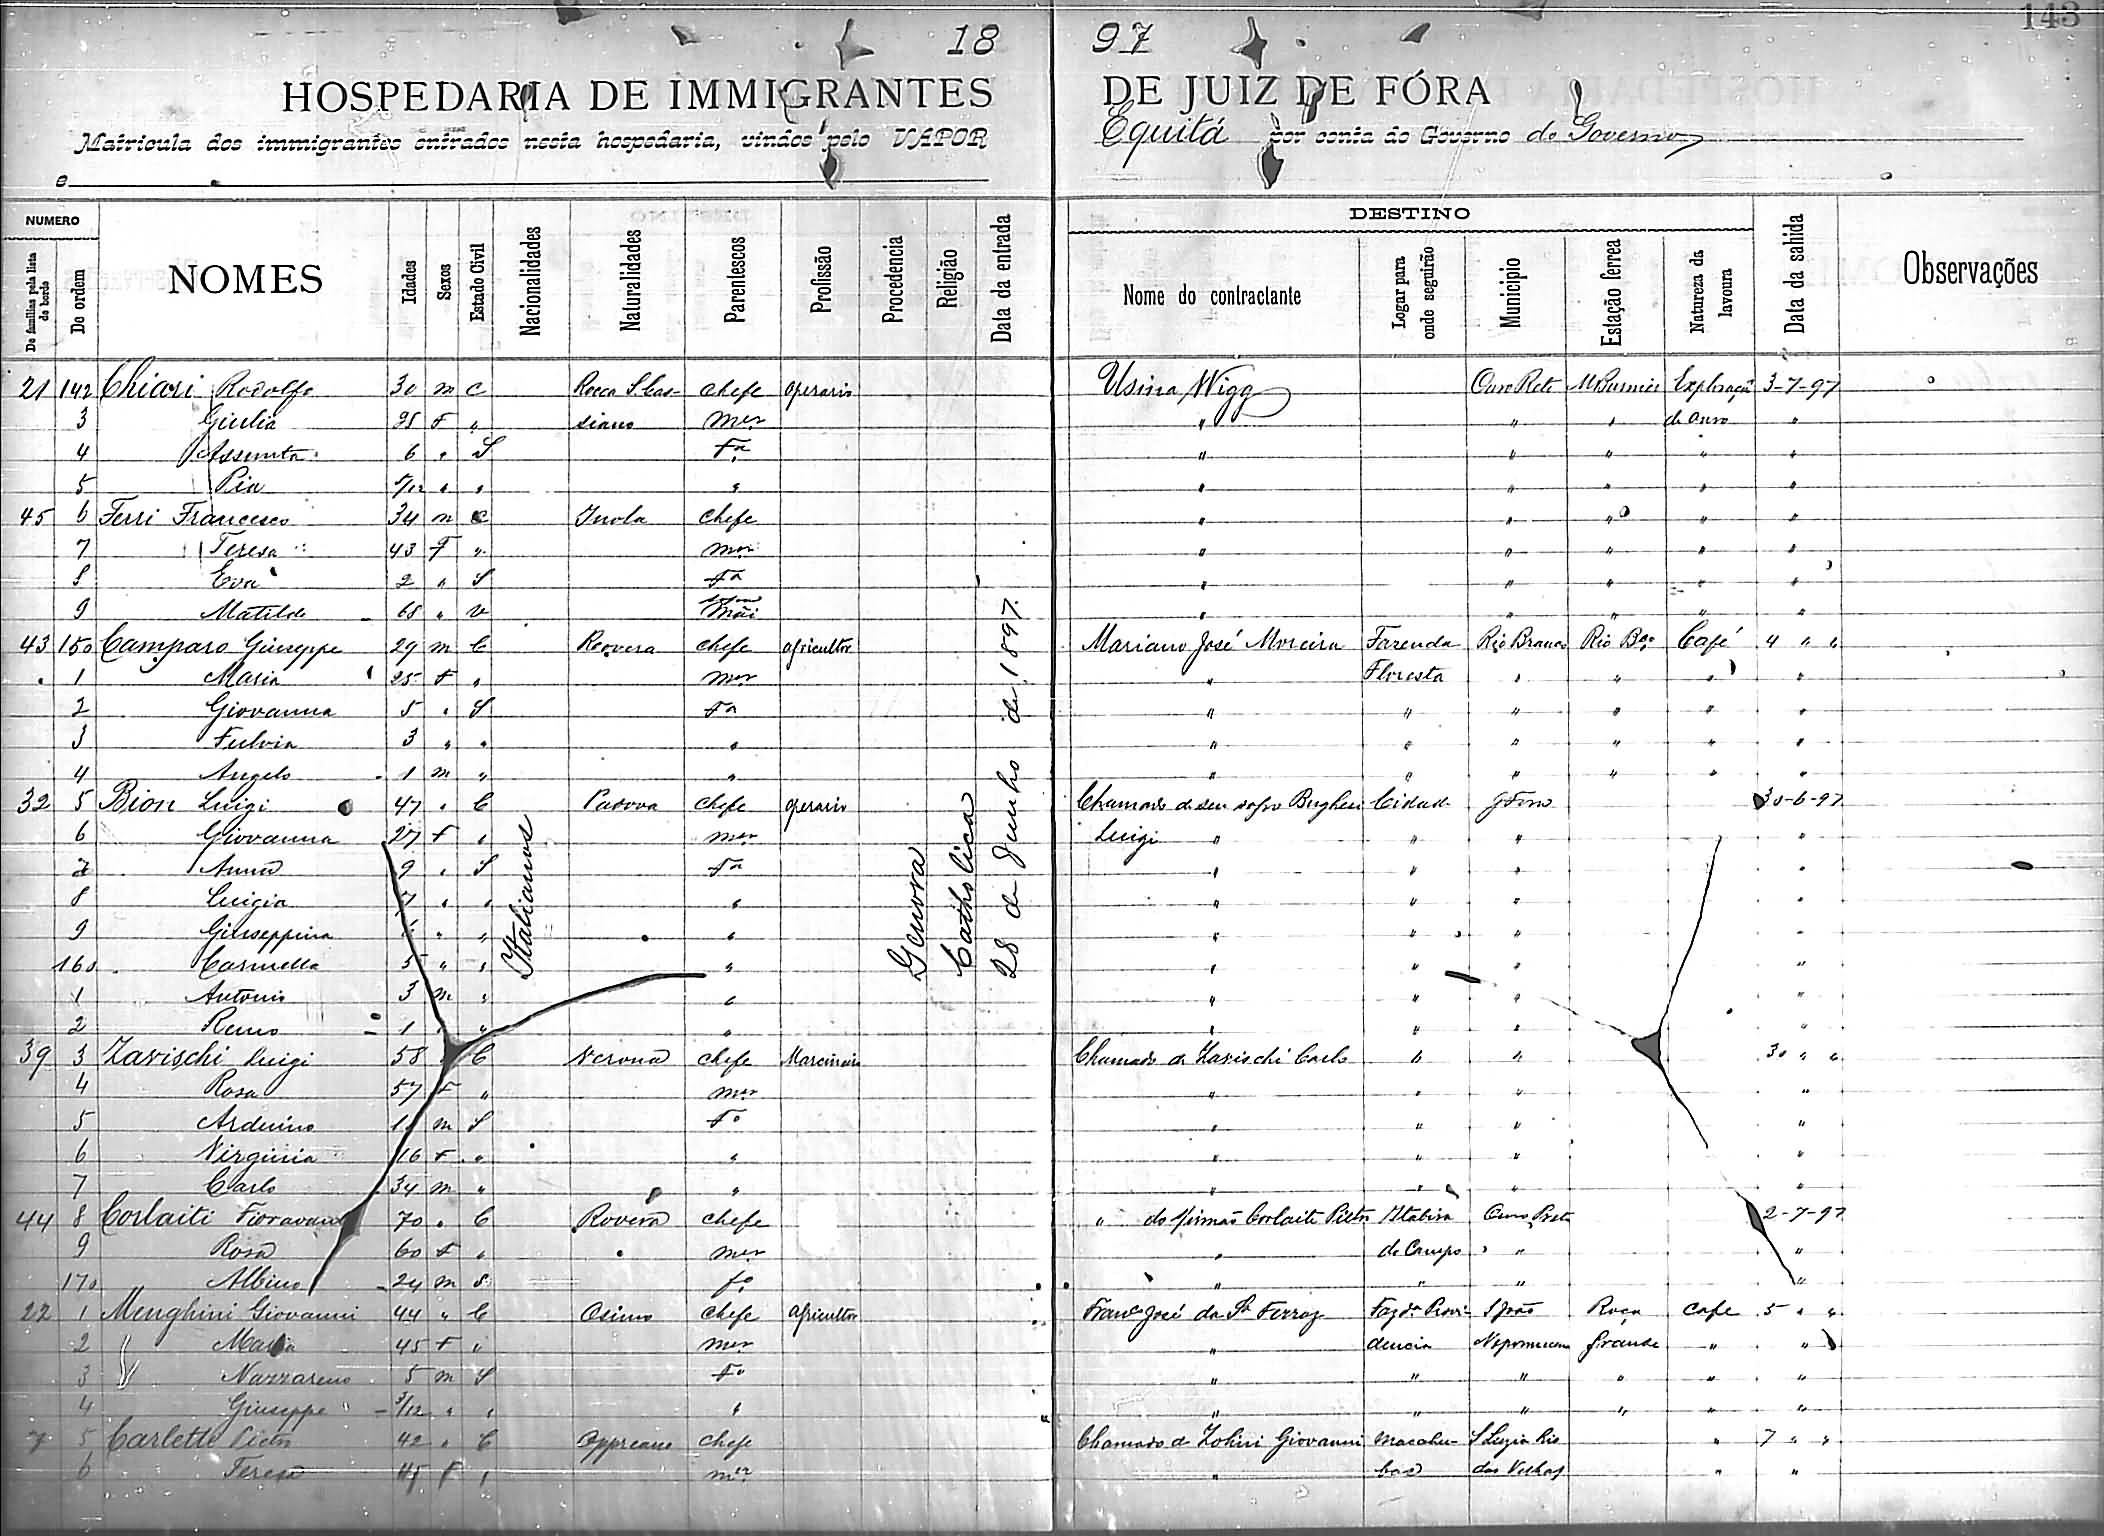 143
18 97
HOSPEDARIA DE IMMIGRANTES DE JUIZ DE FÓRA
Matricula dos immigrantes entrados nesta hospedaria, vindos pelo VAPOR Equitá por conta do Governo do Governo
e
NUMERO
De familias pela lista de bordo
De ordem
NOMES
Idades
Sexos
Estado Civil
Nacionalidades
Naturalidades
Parentescos
Profissão
Procedencia
Religião
Data da entrada
DESTINO
Nome do contractante
Logar para onde seguirão
Municipio
Estação ferrea
Natureza da lavoura
Data da sahida
Observações
Italianos
Genova
Catholica
28 de Junho de 1897
21 142 Chiari Rodolfo 30 m C Rocca S. Cas- Chefe operario Usina Wigg Ouro Reto M Burnier Exploração 3-7-97
3 Giulia 25 F " siano mer " " " de Ouro "
4 Assunta 6 " S Fa " " " " "
5 Pia 5/12 " " " " " " " "
45 6 Ferri Francesco 34 m C Imola Chefe " " " " "
7 Teresa 43 F " mer " " " " "
8 Eva 2 " S Fa " " " " "
9 Matilde 68 " V Mãi " " " " "
43 150 Camparo Giuseppe 29 m C Rovera Chefe agricultor Mariano José Moreira Fazenda Rio Branco Rio Bco Café 4 " "
1 Maria 25 F " mer " Floresta " " " "
2 Giovanna 5 " S Fa " " " " " "
3 Fulvia 3 " " " " " " " " "
4 Angelo 1 m " " " " " " " "
32 5 Bion Luigi 47 " C Padova Chefe operario Chamado de seu sogro Bugheri Cidade J Fora 30-6-97
6 Giovanna 27 F " mer Luigi " " " "
7 Anna 9 " S Fa " " " "
8 Luigia 7 " " " " " " "
9 Giuseppina " " " " " " "
160 Carmella 5 " " " " " " "
1 Antonio 3 m " " " " " "
2 Remo 1 " " " " " " "
39 3 Zavischi Luigi 58 " C Verona Chefe Marcineiro Chamado de Zavischi Carlo " " 30 " "
4 Rosa 57 F " mer " " " "
5 Arduino m S Fo " " " "
6 Virginia 16 F " " " " " "
7 Carlo 34 m " " " " " "
44 8 Corlaiti Fioravan 70 " C Rovera Chefe " do irmão Corlaiti Pietro Itabira Ouro Preto 2-7-97
9 Rosa 60 F " mer " do Campo " "
170 Albino 24 m S fo " " " "
22 1 Menghini Giovanni 44 " C Osimo Chefe Agricultor Franco José da Sa Ferraz Fazda Provi- S João Roça Café 5 " "
2 Maria 45 F " mer " dencia Nepomuceno Grande " "
3 Nazzareno 5 m S Fo " " " " " "
4 Giuseppe 3/12 " " " " " " " " "
7 5 Carlette Pietro 42 " C Oppeano Chefe Chamado de Zohini Giovanni Macahu- S Luzia Rio " 7 " "
6 Teresa 45 F " mer " bas das Velhas " "